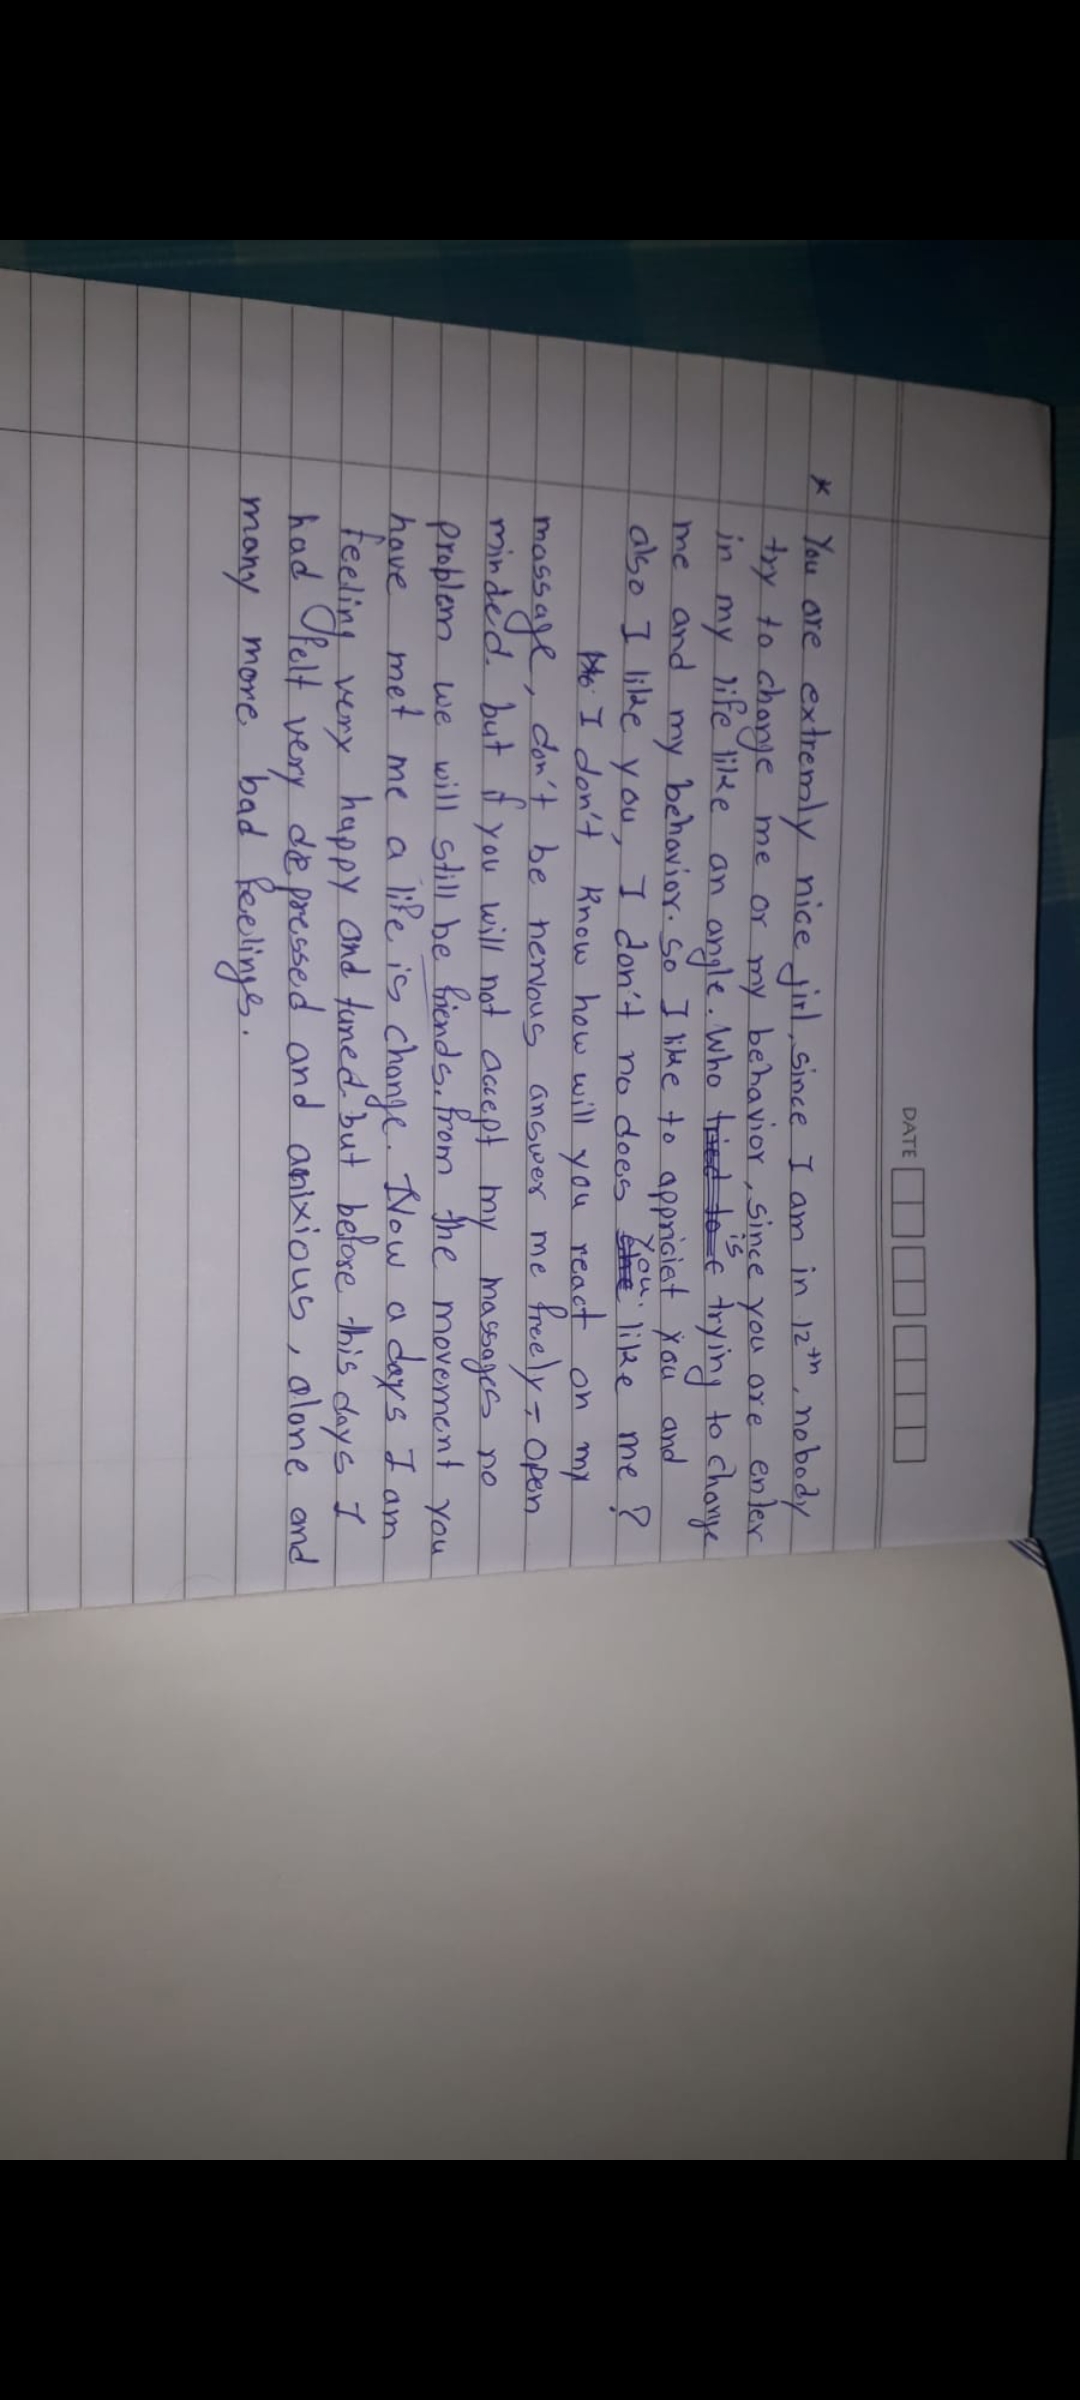 DATE
* You are extremly nice jirl, since I am in 12th, nobody
try to change me or my behavior, since you are enter
in my life like an angle. Who is trying to change
me and my behavior. So I like to appriciat you and
also I like you, I don't no does you like me?
I don't know how will you react on my
massage, don't be nervous answer me freely - open
minded. but if you will not accept my massages no
problem we will still be friends. from the movement you
have met me a life is change. Now a days I am
feeling very happy and tuned but before this days I
had felt very depressed and anixious, alone and
many more bad feelings.